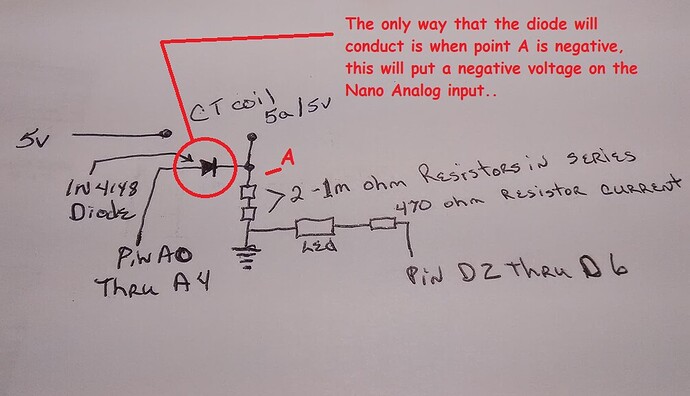 The only way that the diode will
conduct is when point A is negative,
this will put a negative voltage on the
Nano Analog input..
CT coil
5a/5v
5v
A
1N4148
Diode
2 -1m ohm Resistors in series
470 ohm Resistor current
Led
Pin A0
Thru A4
Pin D2 Thru D6